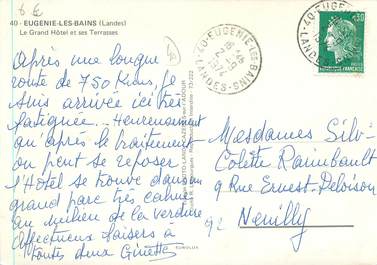 6 €
40 - EUGENIE-LES-BAINS (Landes)
Le Grand Hôtel et ses Terrasses
Après une longue
route de 750 Kms, je
suis arrivée ici très
fatiguée... Heureusement
qu'après le traitement
on peut se reposer
l'Hôtel se trouve dans un
grand parc très calme
au milieu de la verdure
affectueux baisers à
toutes deux Ginette
40-EUGENIE LES BAINS
LANDES
0,30
REPUBLIQUE FRANCAISE
Mesdames Silv-
Colette Raimbault
9 Rue Ernest-Deloison
92 Neuilly
EUROLUX